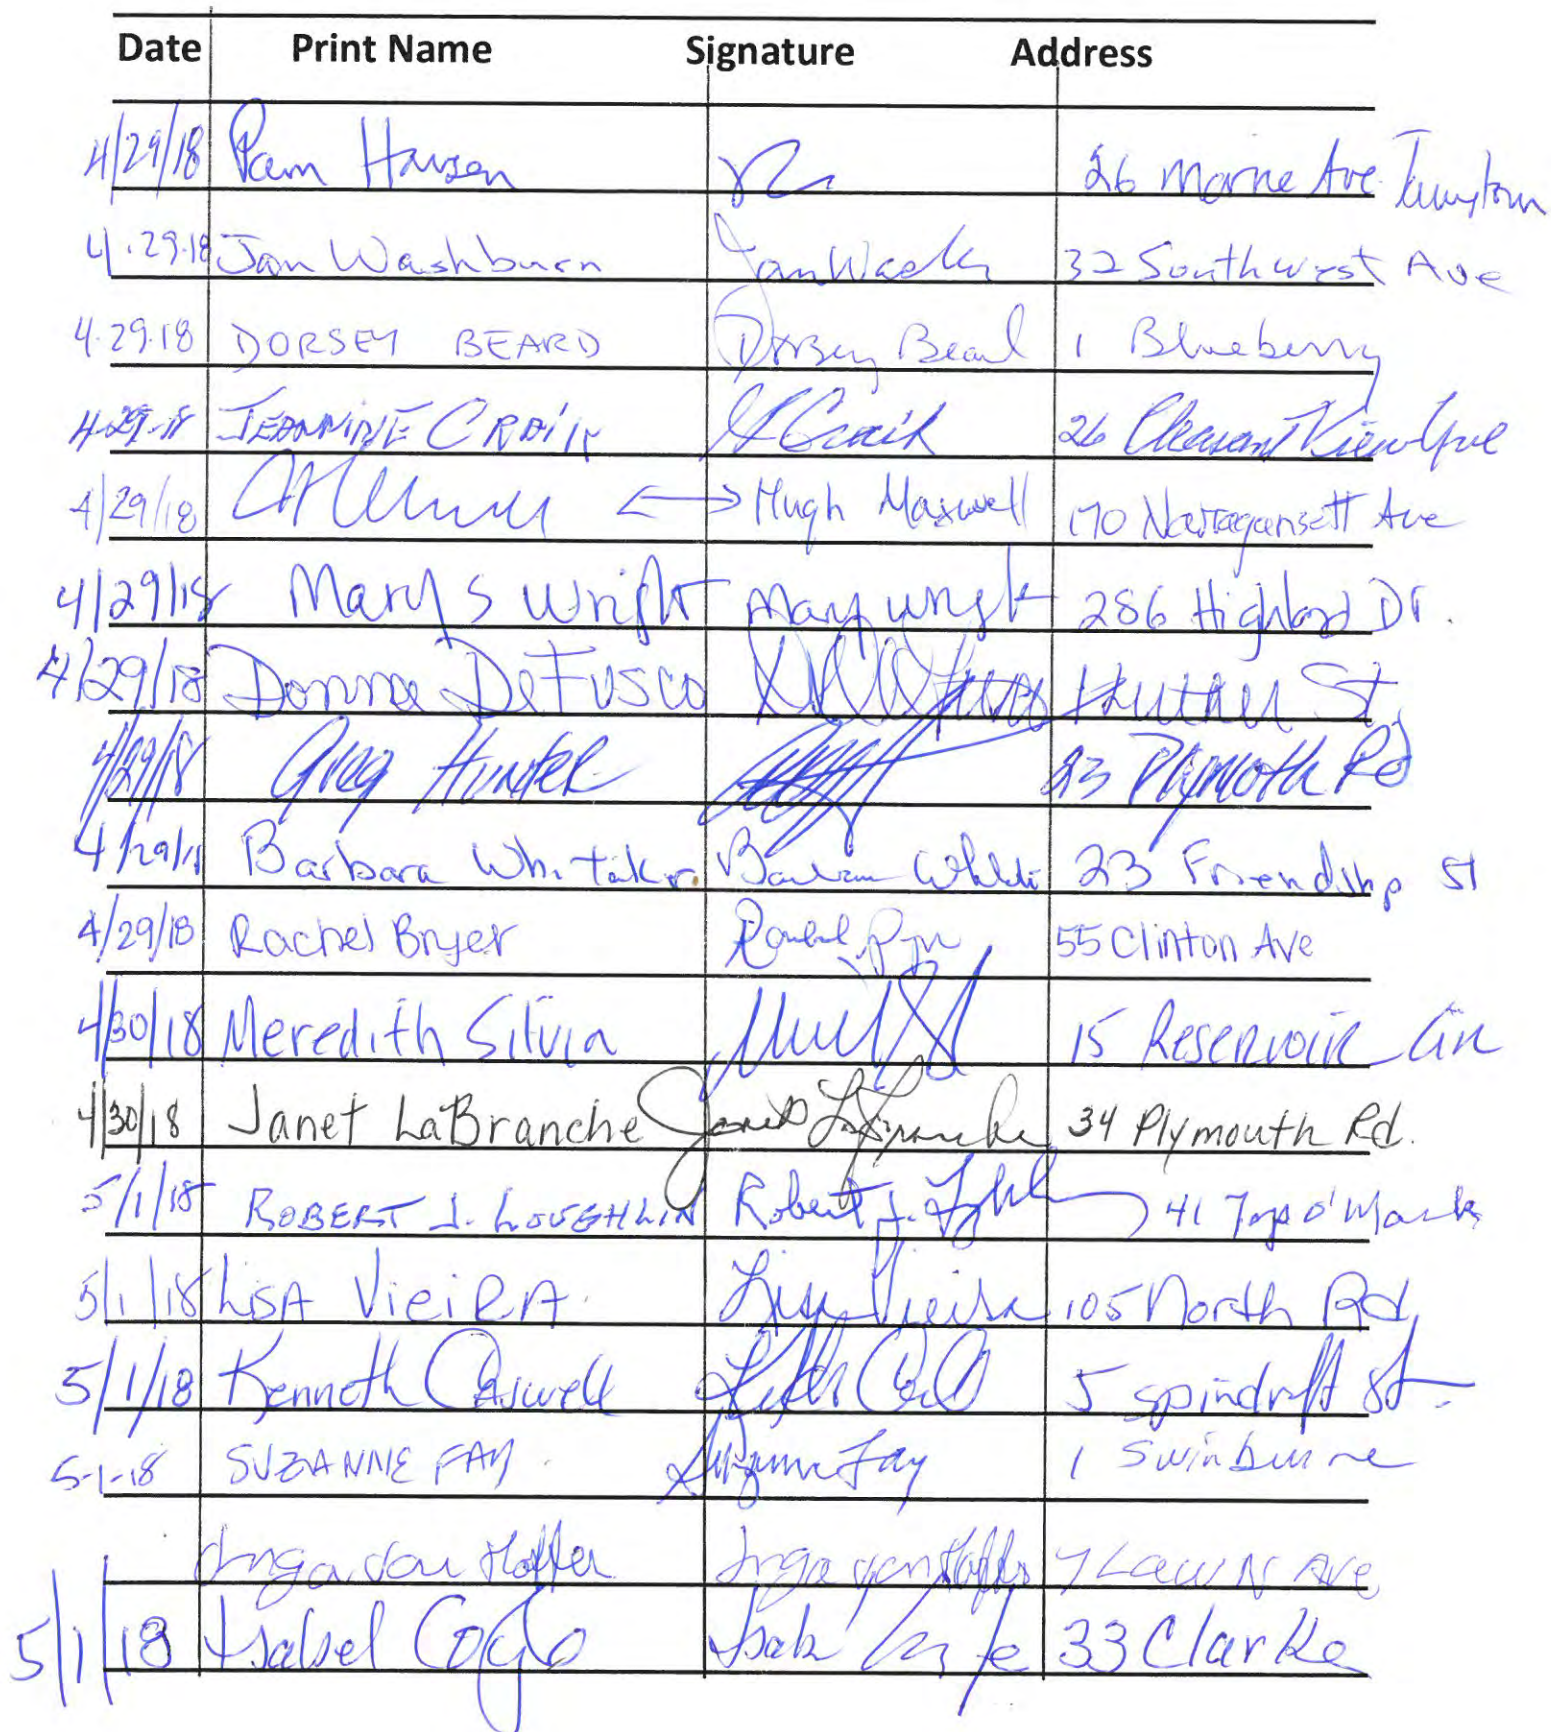 Date Print Name Signature Address
4/29/18 Pam Hansen 26 Marine Ave Jamestown
4.29.18 Jan Washburn 32 Southwest Ave
4.29.18 DORSEY BEARD Dorsey Beard 1 Blueberry
4-29-18 JEANNINE CRAIN 26 Pleasant View Ave
4/29/18 Hugh Maxwell 170 Narragansett Ave
4/29/18 Mary S Wright Mary Wright 286 Highland Dr.
4/29/18 Donna DeFusco St
4/29/18 Greg Hunter 23 Plymouth Rd
4/29/18 Barbara Whitaker 23 Friendship St
4/29/18 Rachel Bryer 55 Clinton Ave
4/30/18 Meredith Silvia 15 Reservoir Cir
4/30/18 Janet LaBranche Janet LaBranche 34 Plymouth Rd.
5/1/18 ROBERT J. LOUGHLIN Robert J. 41 Top o' Mark
5/1/18 LISA VieiRA. Lisa Vieira 105 North Rd.
5/1/18 Kenneth Caswell 5 spindrift St
5-1-18 SUZANNE FAY Suzanne Fay 1 Swinburne
Inga van 7 Lawn Ave
5/1/18 Isabel 33 Clarke